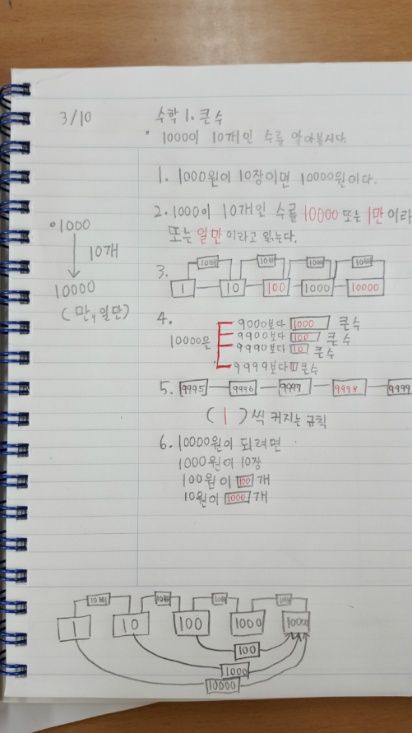 3/10
수학 1. 큰 수
• 1000이 10개인 수를 알아봅시다.
1. 1000원이 10장이면 10000원이다.
2. 1000이 10개인 수를 10000 또는 1만 이라
또는 일만 이라고 읽는다.
•1000
10개
10000
(만, 일만)
3.
10배 10배 10배 10배
1 10 100 1000 10000
4.
10000은
9000보다 1000 큰 수
9900보다 100 큰 수
9990보다 10 큰 수
9999보다 1 큰 수
5. 9995 9996 9997 9998 9999
( 1 ) 씩 커지는 규칙
6. 10000원이 되려면
1000원이 10장
100원이 100개
10원이 1000개
10배 10배 10배 10배
1 10 100 1000
100
1000
10000